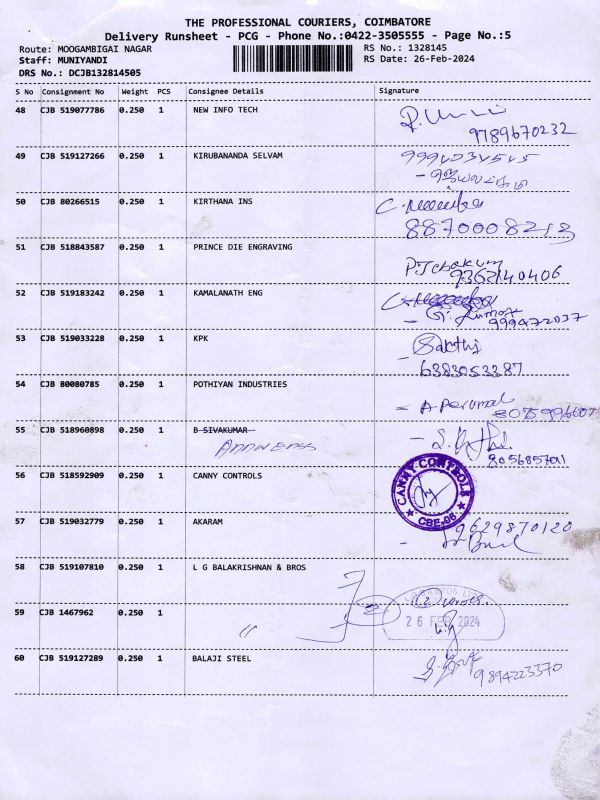 THE PROFESSIONAL COURIERS, COIMBATORE
Delivery Runsheet - PCG - Phone No.:0422-3505555 - Page No.:5
Route: MOOGAMBIGAI NAGAR RS No.: 1328145
Staff: MUNIYANDI RS Date: 26-Feb-2024
DRS No.: DCJB132814505
S No Consignment No Weight PCS Consignee Details Signature
48 CJB 519077786 0.250 1 NEW INFO TECH
9789670232
49 CJB 519127266 0.250 1 KIRUBANANDA SELVAM
50 CJB 80266515 0.250 1 KIRTHANA INS
8870008213
51 CJB 518843587 0.250 1 PRINCE DIE ENGRAVING
9362140406
52 CJB 519183242 0.250 1 KAMALANATH ENG
G. Kumar
999472037
53 CJB 519033228 0.250 1 KPK Sakthi
6383053387
54 CJB 80080785 0.250 1 POTHIYAN INDUSTRIES
A. Perumal
55 CJB 518960898 0.250 1 B SIVAKUMAR
8056857011
56 CJB 518592909 0.250 1 CANNY CONTROLS
CANNY CONTROLS
CBE-06
57 CJB 519032779 0.250 1 AKARAM 9629870120
58 CJB 519107810 0.250 1 L G BALAKRISHNAN & BROS
2
59 CJB 1467962 0.250 1 "
26 FEB 2024
60 CJB 519127289 0.250 1 BALAJI STEEL
9894223370